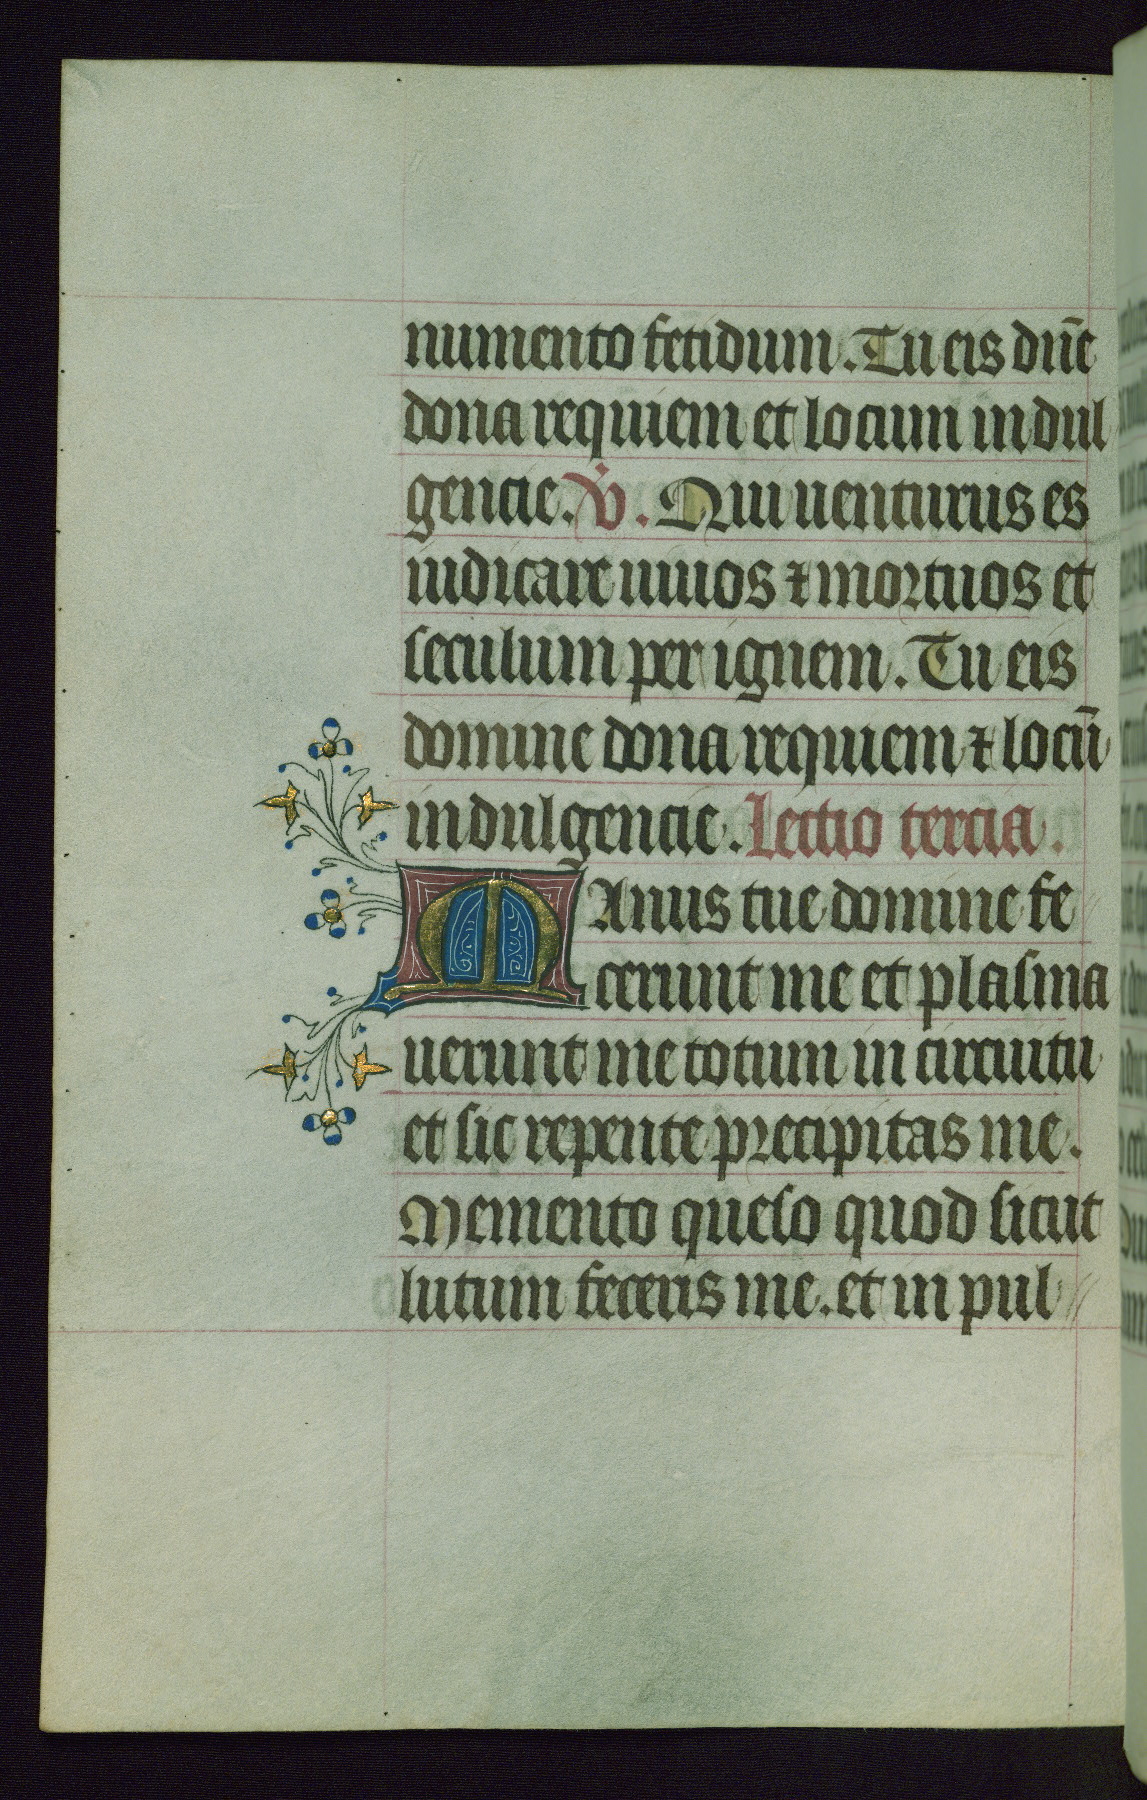 numento fetidum. Tu eis dn̄e
dona requiem et locum indul
gencie. V̇. Qui uenturus es
iudicare uiuos ⁊ mortuos et
seculum per ignem. Tu eis
domine dona requiem ⁊ locū
indulgencie. Lectio tercia.
MAnus tue domine fe
cerunt me et plasma
uerunt me totum in circuitu
et sic repente precipitas me.
Memento queso quod sicut
lutum feceris me. et in pul